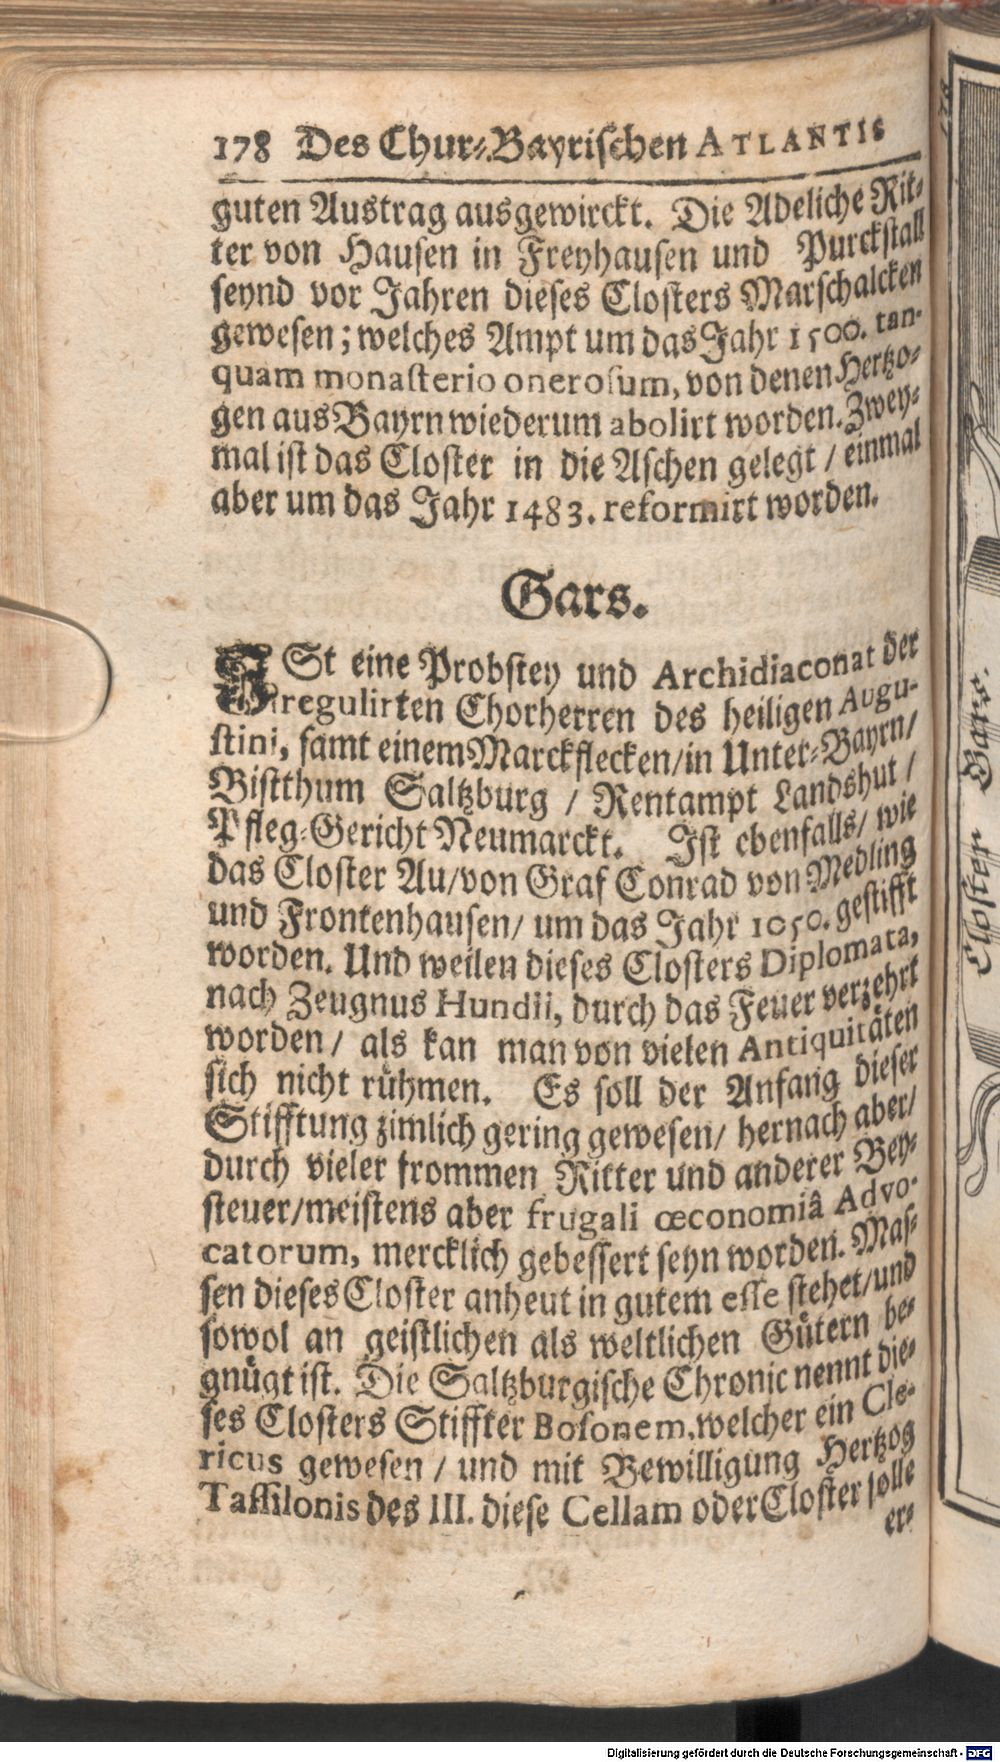 178 Des Chur-Bayrischen ATLANTIS
guten Austrag ausgewirckt. Die Adeliche Rit-
ter von Hausen in Freyhausen und Purckstall
seynd vor Jahren dieses Closters Marschalcken
gewesen; welches Ampt um das Jahr 1500. tan-
quam monasterio onerosum, von denen Hertzo-
gen aus Bayrn wiederum abolirt worden. Zwey-
mal ist das Closter in die Aschen gelegt / einmal
aber um das Jahr 1483. reformirt worden.
Gars.
ISt eine Probstey und Archidiaconat der
regulirten Chorherren des heiligen Augu-
stini, samt einem Marckflecken/in Unter-Bayrn/
Bistthum Saltzburg / Rentampt Landshut /
Pfleg-Gericht Neumarckt. Ist ebenfalls/ wie
das Closter Au/von Graf Conrad von Medling
und Frontenhausen/ um das Jahr 1050. gestifft
worden. Und weilen dieses Closters Diplomata,
nach Zeugnus Hundii, durch das Feuer verzehrt
worden / als kan man von vielen Antiquitäten
sich nicht rühmen. Es soll der Anfang dieser
Stifftung zimlich gering gewesen/ hernach aber/
durch vieler frommen Ritter und anderer Bey-
steuer/meistens aber frugali œconomiâ Advo-
catorum, mercklich gebessert seyn worden. Mas-
sen dieses Closter anheut in gutem esse stehet/und
sowol an geistlichen als weltlichen Gütern be-
gnügt ist. Die Saltzburgische Chronic nennt die-
ses Closters Stiffter Bosonem, welcher ein Cle-
ricus gewesen / und mit Bewilligung Hertzog
Tassilonis des III. diese Cellam oder Closter solle
er-
178
Closter Gars.
Digitalisierung gefördert durch die Deutsche Forschungsgemeinschaft - DFG